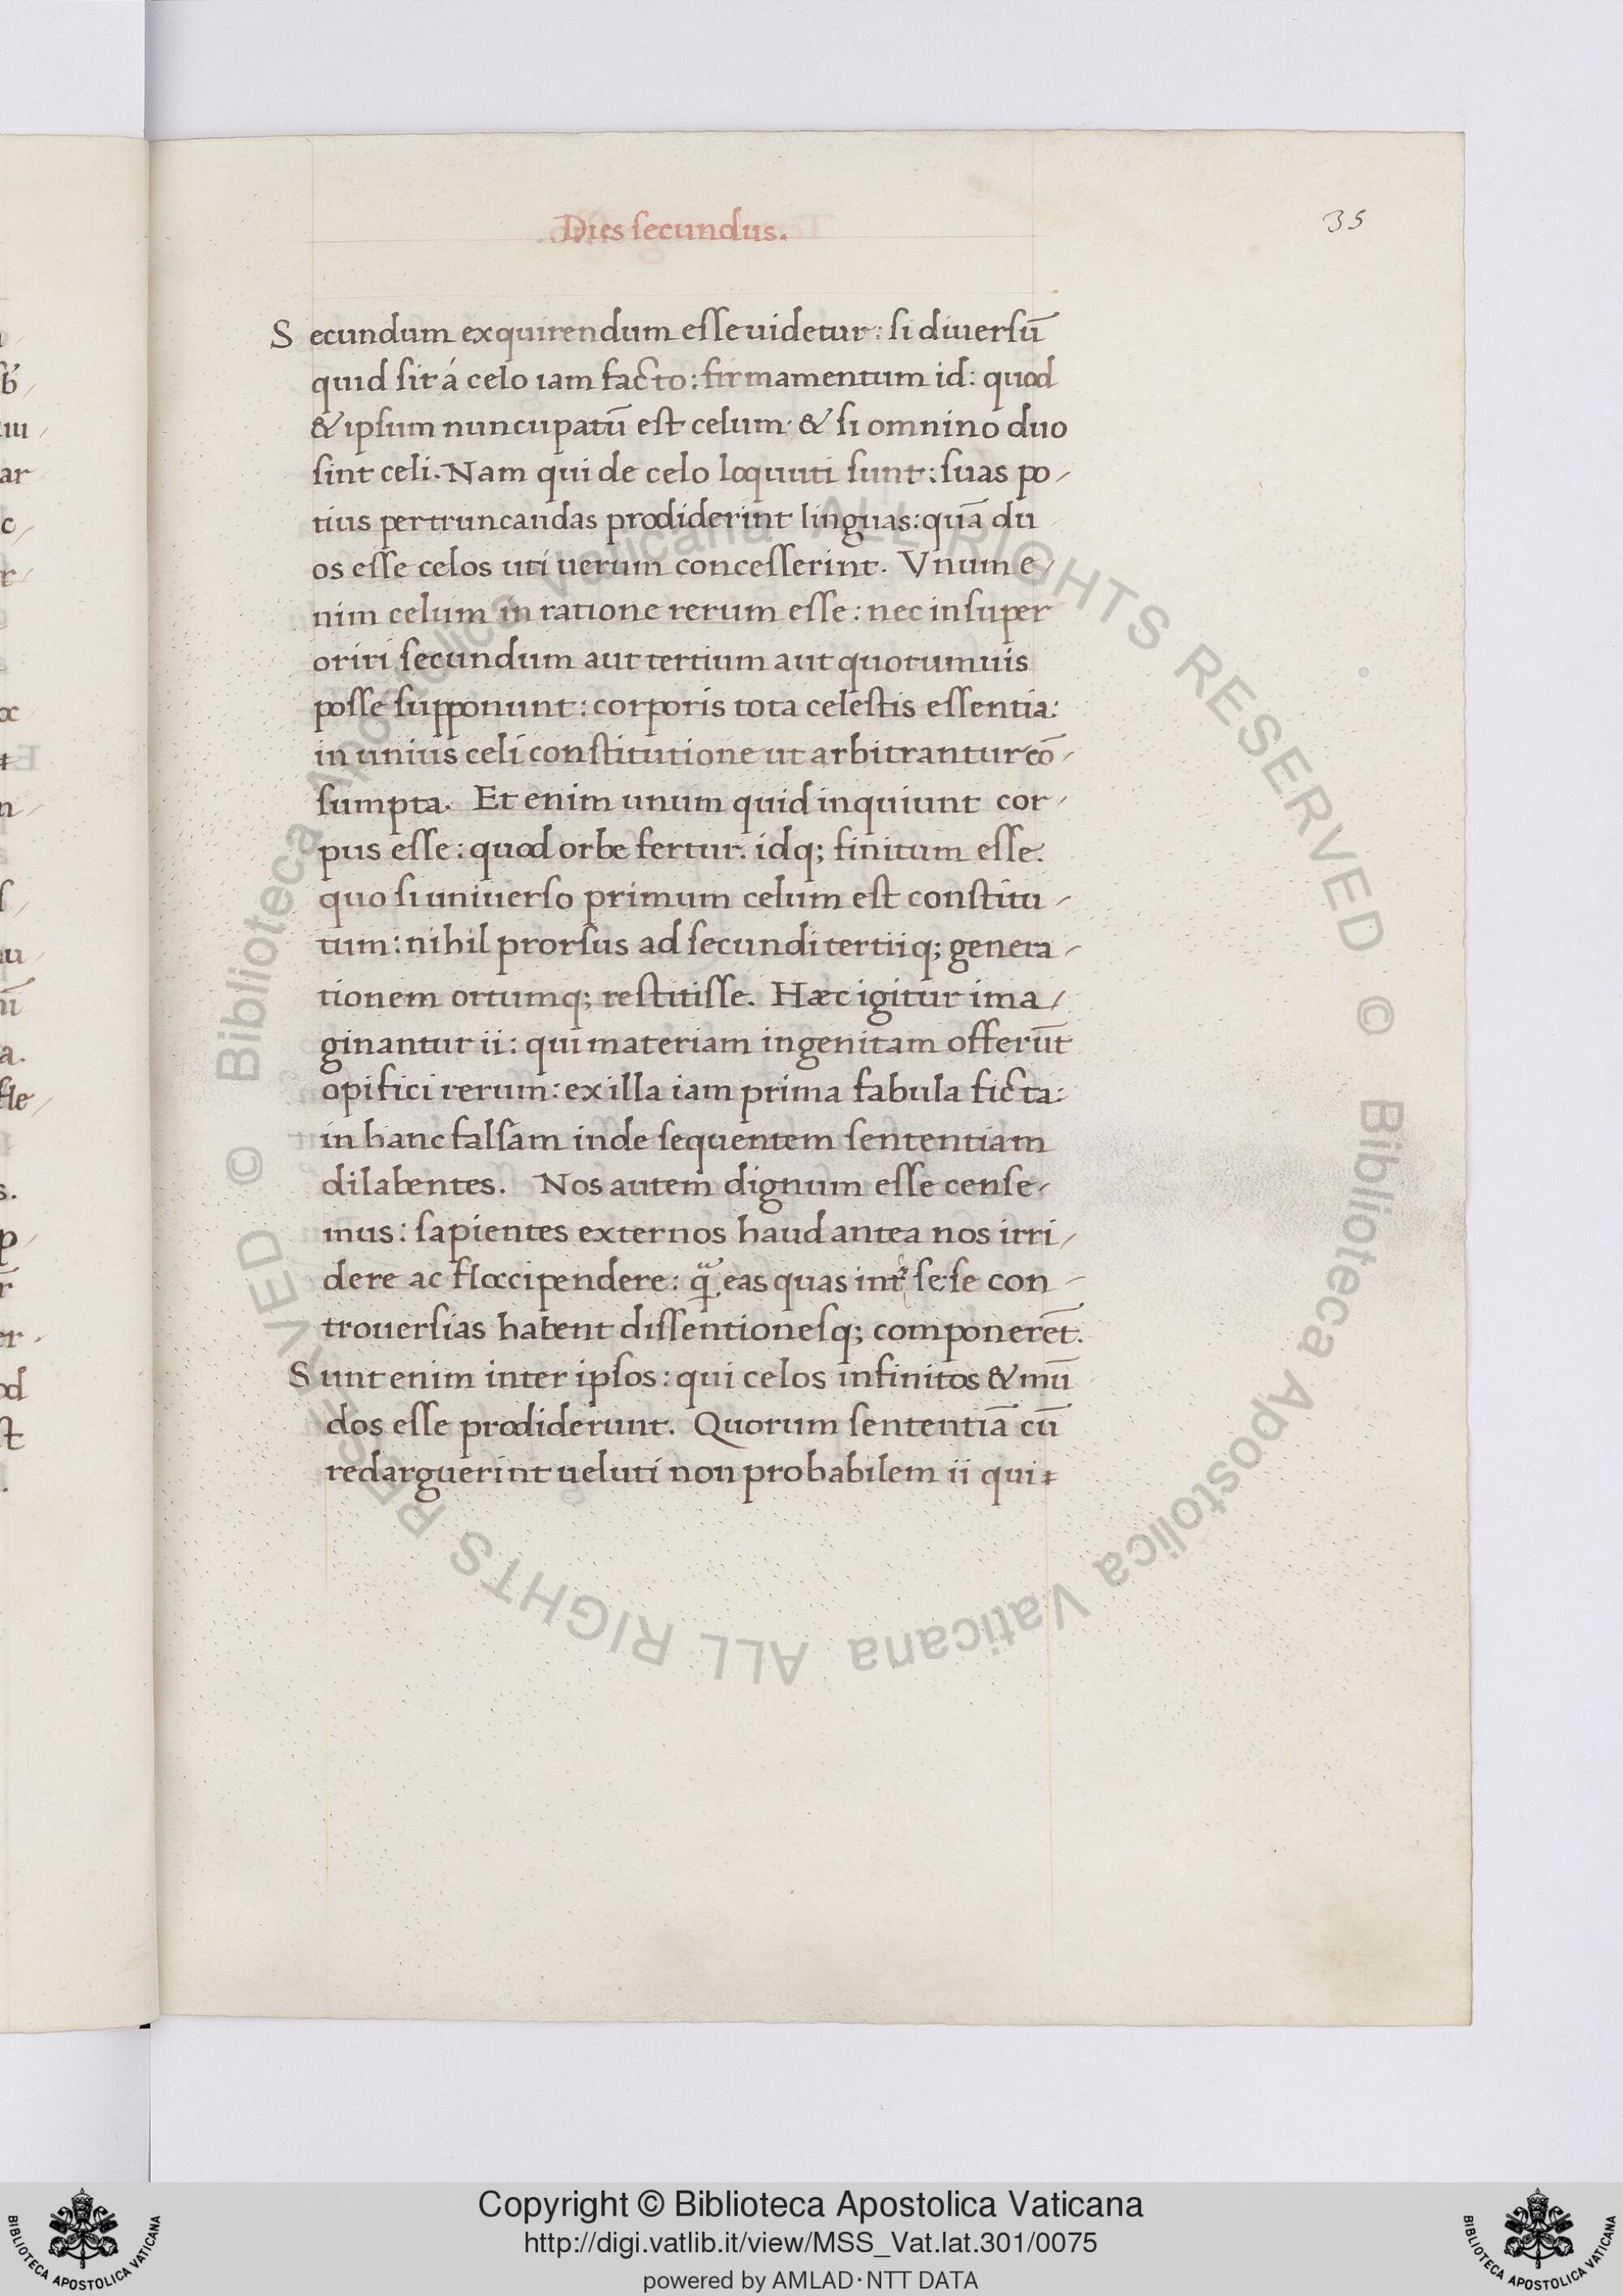 Dies secundus.
35
Secundum exquirendum esse uidetur: si diuersū
quid sit á celo iam facto: firmamentum id: quod
& ipsum nuncupatū est celum· & si omnino duo
sint celi. Nam qui de celo loquuti sunt: suas po/
tius pertruncandas prodiderint linguas: quā du
os esse celos uti uerum concesserint. Vnum e/
nim celum in ratione rerum esse: nec insuper
oriri secundum aut tertium aut quotumuis
posse supponunt: corporis tota celestis essentia:
in unius celi constitutione ut arbitrantur cō/
sumpta. Et enim unum quid inquiunt cor/
pus esse: quod orbe fertur. idq; finitum esse.
quo si uniuerso primum celum est constitu/
tum: nihil prorsus ad secundi tertiiq; genera/
tionem ortumq; restitisse. Hæc igitur ima/
ginantur ii: qui materiam ingenitam offerūt
opifici rerum: ex illa iam prima fabula ficta:
in hanc falsam inde sequentem sententiam
dilabentes. Nos autem dignum esse cense/
mus: sapientes externos haud antea nos irri/
dere ac floccipendere: eas quas int sese con/
trouersias habent dissentionesq; componerēt.
Sunt enim inter ipsos: qui celos infinitos & mū
dos esse prodiderunt. Quorum sententiā cū
redarguerint ueluti non probabilem ii qui
Biblioteca Apostolica Vaticana ALL RIGHTS RESERVED ©
Biblioteca Apostolica Vaticana ALL RIGHTS RESERVED ©
Copyright © Biblioteca Apostolica Vaticana
http://digi.vatlib.it/view/MSS_Vat.lat.301/0075
powered by AMLAD·NTT DATA
BIBLIOTECA APOSTOLICA VATICANA
BIBLIOTECA APOSTOLICA VATICANA